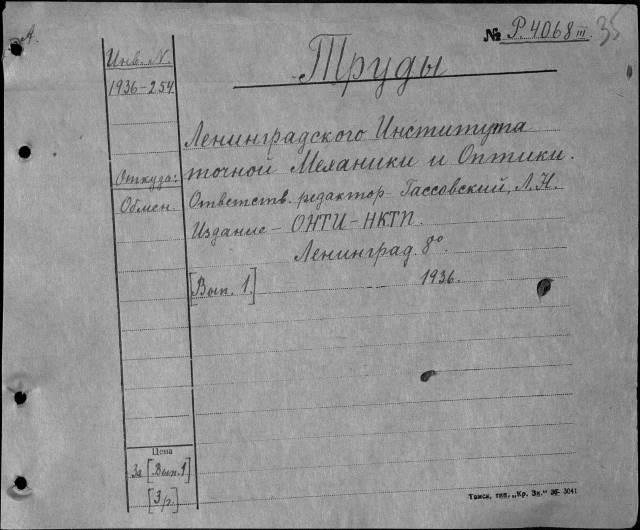 А.
№ Р.4068 III. 35
Труды
Инв. N.
1936-254
Ленинградского Института
точной Механики и Оптики.
Откуда:
Обмен.
Ответств. редактор Гассовский, Л. Н.
Издание – ОНТИ – НКТП.
Ленинград. 8°.
[Вып. 1] 1936.
Цена
За [Вып. 1]
[3 р.]
Томск, тип. „Кр. Зн." ЗК- 3041